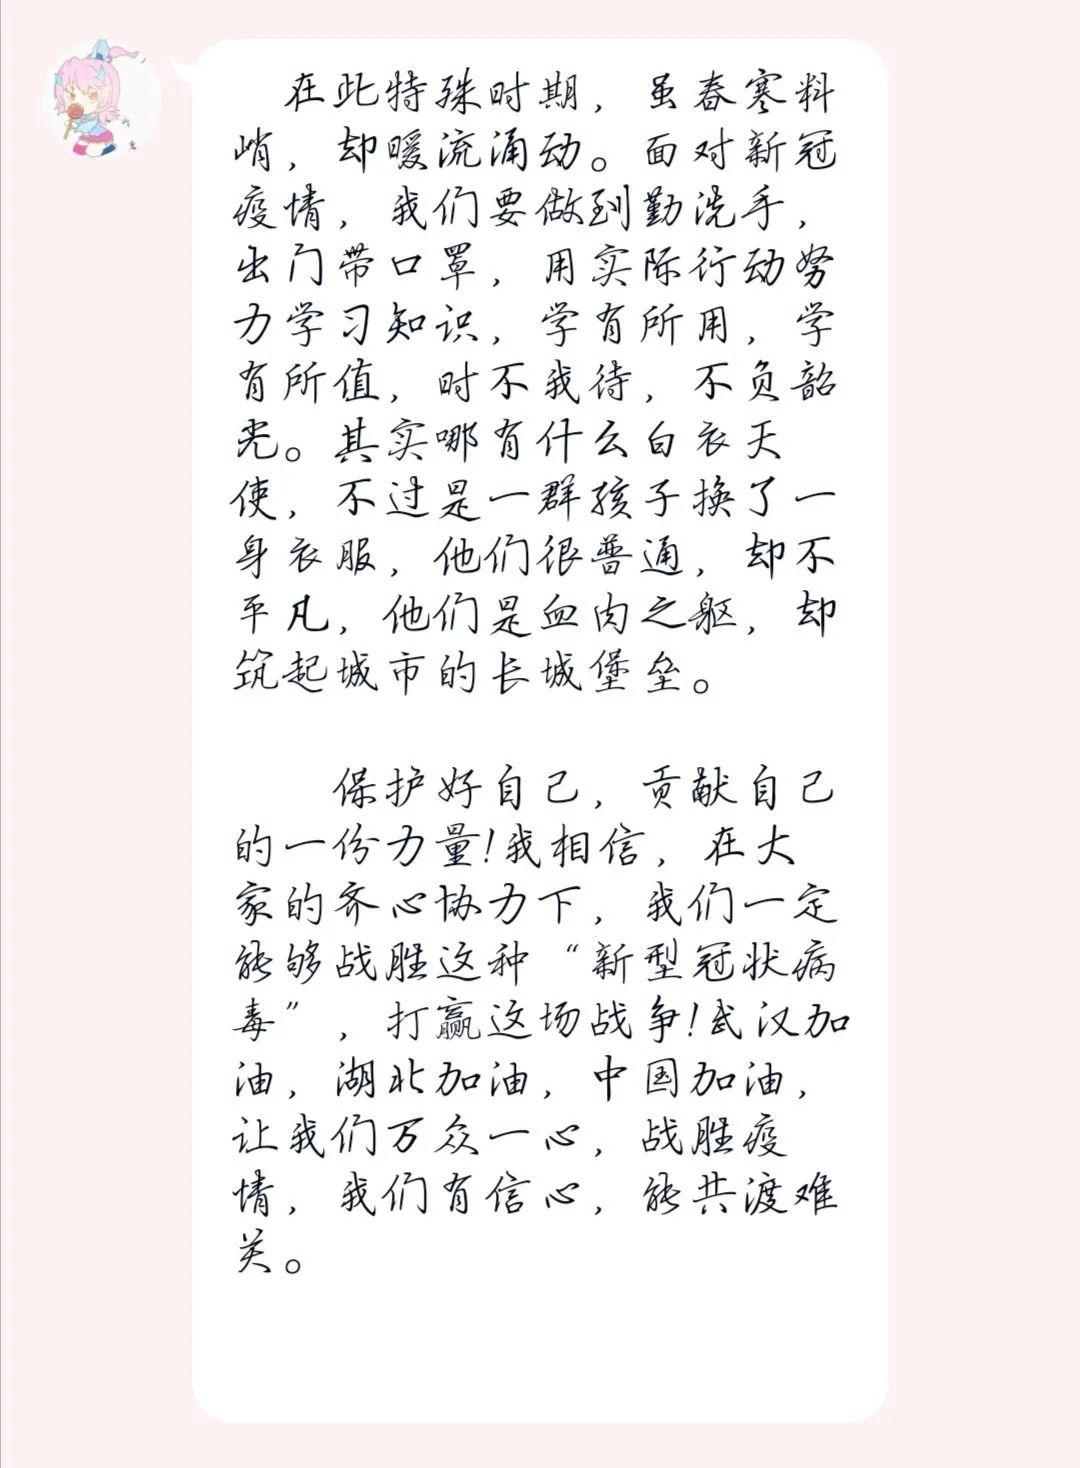 在此特殊时期，虽春寒料
峭，却暖流涌动。面对新冠
疫情，我们要做到勤洗手，
出门带口罩，用实际行动努
力学习知识，学有所用，学
有所值，时不我待，不负韶
光。其实哪有什么白衣天
使，不过是一群孩子换了一
身衣服，他们很普通，却不
平凡，他们是血肉之躯，却
筑起城市的长城堡垒。
保护好自己，贡献自己
的一份力量!我相信，在大
家的齐心协力下，我们一定
能够战胜这种“新型冠状病
毒”，打赢这场战争!武汉加
油，湖北加油，中国加油，
让我们万众一心，战胜疫
情，我们有信心，能共渡难
关。